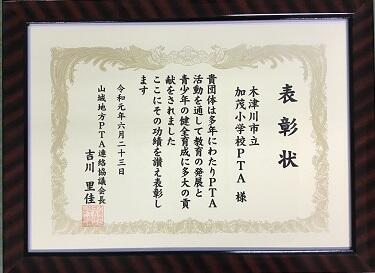 表彰状
木津川市立
加茂小学校PTA 様
貴団体は多年にわたりPTA
活動を通して教育の発展と
青少年の健全育成に多大の貢
献をされました
ここにその功績を讃え表彰し
ます
令和元年六月二十三日
山城地方PTA連絡協議会長
吉川 里佳